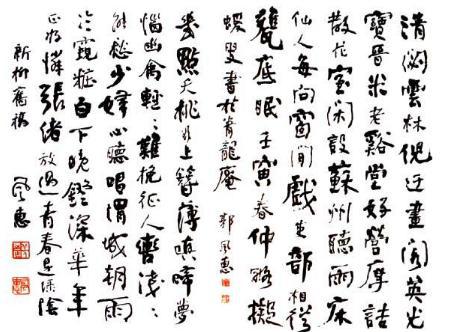 清閟雲林倪迂畫閣英光
寶晉米老谿堂好營摩詰
散花室閑設蘇州聽雨床
仙人每向窗間戲吏部相從
甕底眠壬寅春仲略擬
蝯叟書於青龍庵 郭風惠
幾點夭桃 上簪薄嗔啼夢
惱幽禽輕輕難挽征人轡淺淺
能愁少婦心聽唱渭城朝雨
冷 白下晚 深華年
正 憐張緒放過青春是綠陰
新柳舊稿 風惠